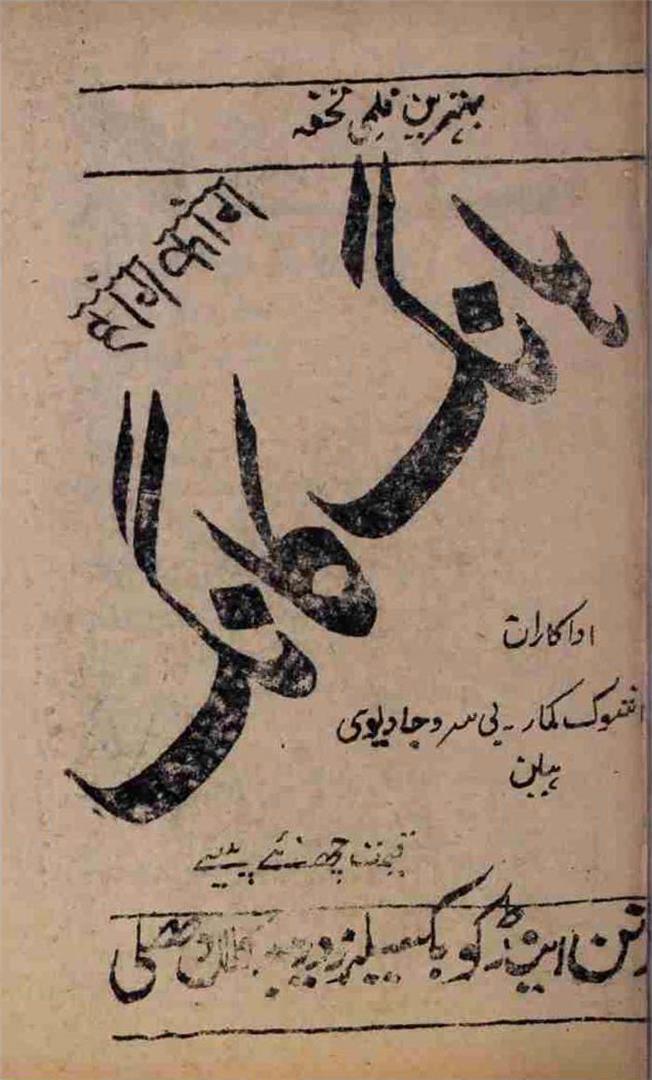 بہترین فلمی تحفہ
ہانگ کانگ
हांग कांग
اداکاران
اشوک کمار۔ بی سروجا دیوی
ہیلن
قیمت چھ نئے پیسے
رتن اینڈ کو بک سیلرز دریبہ کلاں دہلی